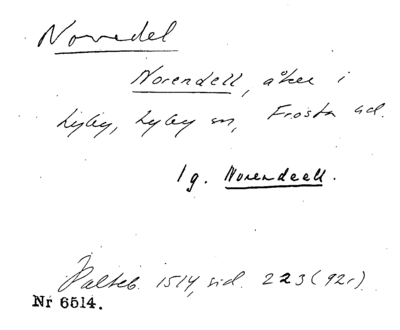 Norredel
Norendell, åker i
Lyby, Lyby sn, Frosta hd.
1 g. Norendeell.
Palteb. 1514, sid. 223 (92r).
Nr 6514.